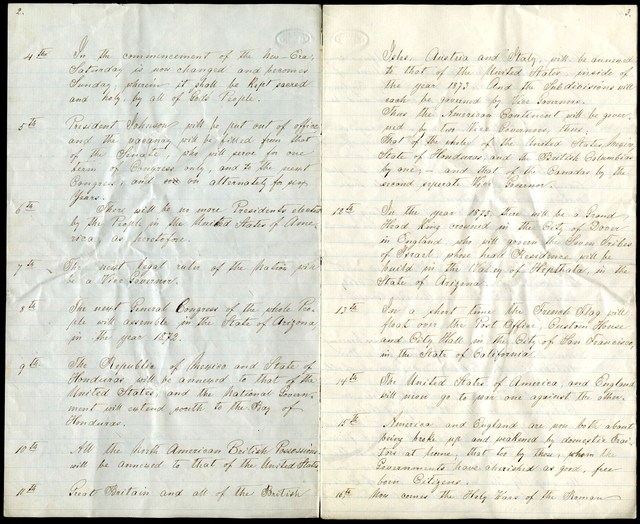 2.
4th In the commencement of the New-Era.
Saturday is now changed and becomes
Sunday, wherein it shall be Kept sacred
and holy, by all of God's People.
5th President Johnson will be put out of office
and the vacancy will be filled from that
of the Senate, who will serve for one
term of Congress only, and to the next
Congress, and on alternately for six
Years.
6th There will be no more Presidents elected
by the People in the United States of Ame-
rica as heretofore.
7th The next legal ruler of the Nation will
be a Vice Governor.
8th The next General Congress of the whole Peo-
ple will assemble in the State of Arizona,
in the year 1872.
9th The Republic of Mexico and State of
Honduras will be annexed to that of the
United States, and the National Govern-
ment will extend south to the Bay of
Honduras.
10th All the North American British Possessions
will be annexed to that of the United States
11th Great Britain and all of the British
3.
Isles, Austria and Italy, will be annexed
to that of the United States, inside of
the year 1873. And the Subdivisions will
each be governed by Vice Governor.
Thus the American Continent will be gover-
ned by two Vice Governors, thus.
That of the whole of the United States, Mexico,
State of Honduras, and the British Columbias
by one; - and that of the Canadas by the
second seperate Vice Governor.
12th In the year 1873 there will be a Grand
Head King crowned in the City of Dover
in England who will govern the Seven Tribes
of Israel, whose head Residence will be
build in the Valley of in the
State of Arizona.
13th In a short time the French Flag will
float over the Post Office, Custom House
and City Hall in the City of San Francisco,
in the State of California.
14th The United States of America, and England
will never go to war one against the other.
15th America and England are now both about
being broke up and weakened by domestic Trai-
tors at home, that too by those, whom the
Governments have cherished as good, free
born Citizens.
16th Now comes the Holy Wars of the Roman